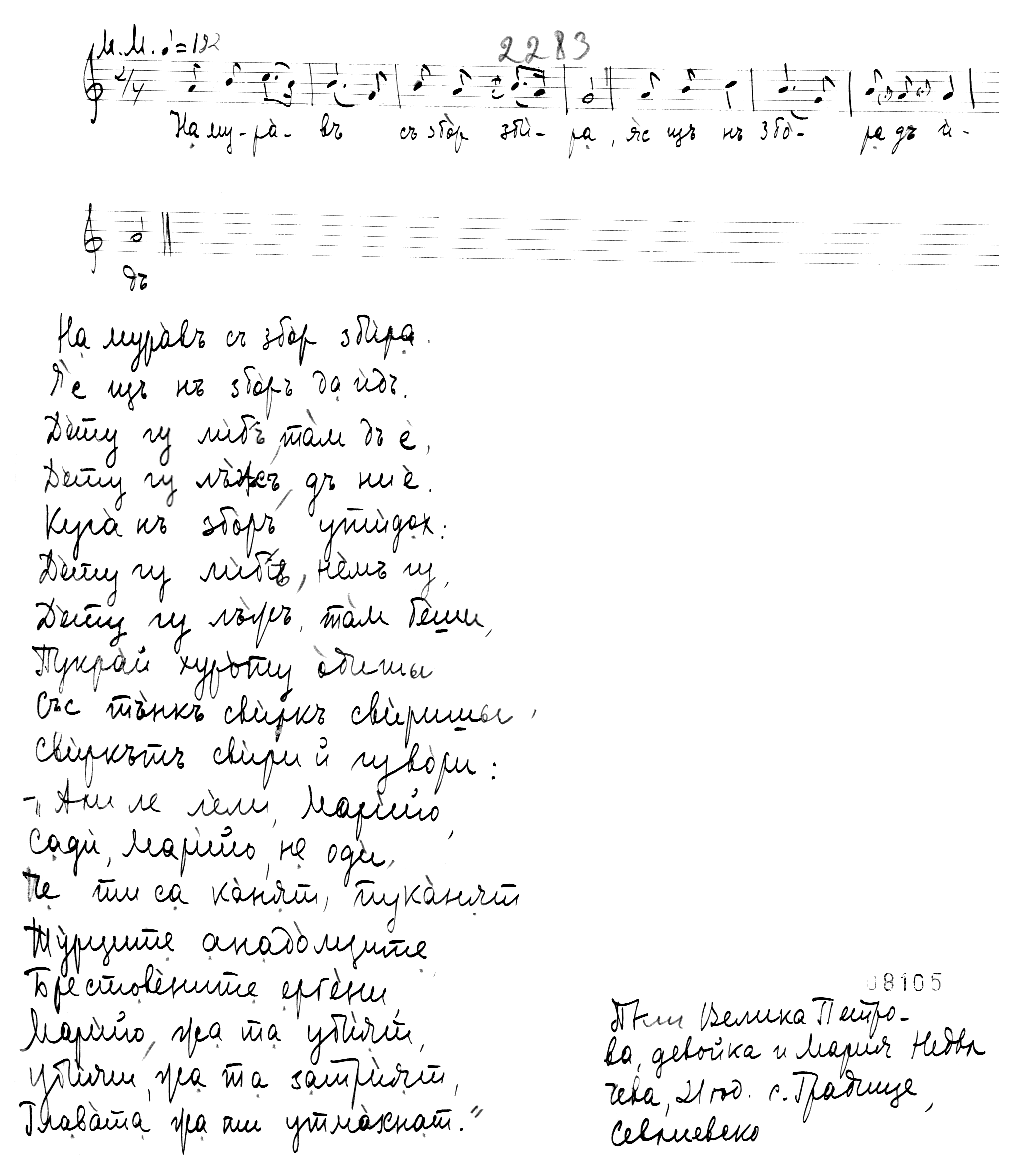 М.М. ♩=192
2283
2/4
На му-рà-въ съ збòр збѝ-ра, Я̀с щъ нъ збò-ра дъ ѝ-
дъ
На мура̀въ съ збòр збѝра.
Я̀с щъ нъ збòръ да ѝдъ.
Дèту гу лѝбъ, тàм дъ è,
Дèту гу лъ̀жъ, дъ ниè.
Кугà нъ збòръ утѝдох:
Дèту гу лѝбъ, нèмъ гу,
Дèту гу лъ̀жъ, тàм бèши,
Пукрàй хурòту òбишы
Със тъ̀нкъ свѝркъ свѝришы,
Свѝркътъ свѝри й гувòри:
-„Ани ле лели, Марѝйо,
Садѝ, Марѝйо, не одѝ,
Че ти са кàнят, пукàнят
Тỳрците анадòлците
Брестовèните ергèни,
Марѝйо, жа та убѝят,
убѝят, жа та затрѝят,
Главàта жа ти утмàхнат."
08105
Пели Велика Петро-
ва, девойка и Мария Недял
чева, 21 год. с. Градище,
Севлиевско